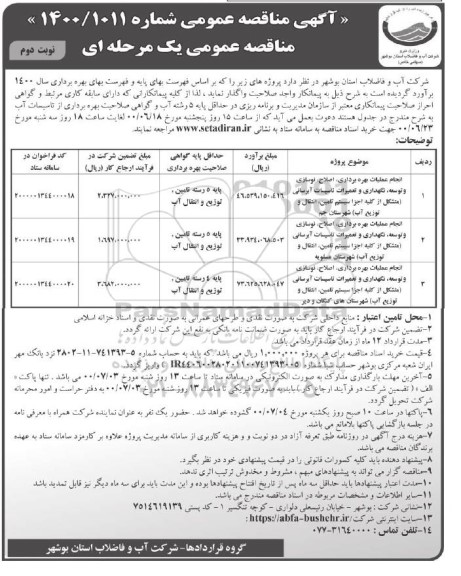 « آگهی مناقصه عمومی شماره ۱۴۰۰/۱۰۱۱ »
مناقصه عمومی یک مرحله ای
نوبت دوم
شرکت آب و فاضلاب استان بوشهر در نظر دارد پروژه های زیر را که بر اساس فهرست بهای پایه و فهرست بهای بهره برداری سال ۱۴۰۰
برآورد گردیده است به شرح ذیل به پیمانکار واجد صلاحیت واگذار نماید ، لذا از کلیه پیمانکارانی که دارای سابقه کاری مرتبط و گواهی
احراز صلاحیت پیمانکاری معتبر از سازمان مدیریت و برنامه ریزی در حداقل پایه ۵ رشته آب و گواهی صلاحیت بهره برداری از تاسیسات آب
به شرح مندرج در جدول هستند دعوت بعمل می آید که از ساعت ۱۵ روز پنجشنبه مورخ ۰۰/۰۶/۱۸ لغایت ساعت ۱۸ روز سه شنبه مورخ
۰۰/۰۶/۲۳ جهت خرید اسناد مناقصه به سامانه ستاد به نشانی www.setadiran.ir مراجعه نمایند.
ردیف موضوع پروژه مبلغ برآورد (ریال) حداقل پایه گواهی صلاحیت بهره برداری مبلغ تضمین شرکت در فرآیند ارجاع کار (ریال) کد فراخوان در سامانه ستاد
۱ انجام عملیات بهره برداری، اصلاح، نوسازی و توسعه، نگهداری و تعمیرات تاسیسات آبرسانی (متشکل از کلیه اجزا سیستم تامین، انتقال و توزیع آب) شهرستان جم ۴۶،۵۳۹،۱۵۰،۴۱۶ پایه ۵ رسته تامین، توزیع و انتقال آب ۲،۳۲۷،۰۰۰،۰۰۰ ۲۰۰۰۰۰۱۳۴۴۰۰۰۰۱۸
۲ انجام عملیات بهره برداری، اصلاح، نوسازی و توسعه، نگهداری و تعمیرات تاسیسات آبرسانی (متشکل از کلیه اجزا سیستم تامین، انتقال و توزیع آب) شهرستان عسلویه ۳۳،۹۳۴،۰۶۸،۵۰۳ پایه ۵ رسته تامین، توزیع و انتقال آب ۱،۶۹۷،۰۰۰،۰۰۰ ۲۰۰۰۰۰۱۳۴۴۰۰۰۰۱۹
۳ انجام عملیات بهره برداری، اصلاح، نوسازی و توسعه، نگهداری و تعمیرات تاسیسات آبرسانی (متشکل از کلیه اجزا سیستم تامین، انتقال و توزیع آب) شهرستان های کنگان و دیر ۷۳،۶۲۵،۶۲۸،۰۴۷ پایه ۴ رسته تامین، توزیع و انتقال آب ۳،۶۸۲،۰۰۰،۰۰۰ ۲۰۰۰۰۰۱۳۴۴۰۰۰۰۲۰
۱-محل تامین اعتبار : منابع داخلی شرکت به صورت نقدی و طرحهای عمرانی به صورت نقدی و اسناد خزانه اسلامی
۲-تضمین شرکت در فرآیند ارجاع کار باید به صورت ضمانت نامه بانکی به نفع این شرکت ارائه گردد.
۳-مدت قرارداد ۱۲ ماه از زمان عقد قرارداد می باشد.
۴-قیمت خرید اسناد مناقصه برای هر پروژه ۱،۰۰۰،۰۰۰ ریال می باشد که باید به حساب شماره ۵-۷۴۱۳۹۳-۱۱-۳۸۰۲ نزد بانک مهر
ایران شعبه مرکزی بوشهر
۵-آخرین مهلت بارگذاری مدارک به صورت الکترونیکی در سامانه ستاد تا ساعت ۱۳ روز شنبه مورخ ۰۰/۰۷/۰۳ می باشد . تنها پاکت «
الف » ( تضمین شرکت در فرآیند ارجاع کار ) بایستی به صورت فیزیکی تا ساعت ۱۳ روز شنبه مورخ ۰۰/۰۷/۰۳ به دفتر حراست و امور محرمانه
شرکت تحویل گردد.
۶-پاکتها در ساعت ۱۰ صبح روز یکشنبه مورخ ۰۰/۰۷/۰۴ گشوده خواهد شد . حضور یک نفر به عنوان نماینده شرکت همراه با معرفی نامه
در جلسه بازگشایی پاکتها بلامانع می باشد.
۷-هزینه درج آگهی در روزنامه طبق تعرفه آزاد در دو نوبت و و هزینه کاربری از سامانه مدیریت پروژه علاوه بر کارمزد سامانه ستاد به عهده
برندگان مناقصه می باشد.
۸-پیشنهاد دهنده باید کلیه کسورات قانونی را در قیمت پیشنهادی خود در نظر بگیرد.
۹-مناقصه گزار می تواند به پیشنهادهای مبهم ، مشروط و مخدوش ترتیب اثری ندهد.
۱۰-مدت اعتبار پیشنهادها باید حداقل سه ماه پس از تاریخ افتتاح پیشنهادها بوده و این مدت باید برای سه ماه دیگر نیز قابل تمدید باشد
۱۱-سایر اطلاعات و مشخصات مربوطه در اسناد مناقصه مندرج می باشد.
۱۲-نشانی شرکت : بوشهر - خیابان رئیسعلی دلواری - کوچه تنگسیر ۱ - کد پستی ۷۵۱۴۶۱۹۱۳۹
۱۳-سایت اینترنتی شرکت: https://abfa-bushehr.ir
۱۴-تلفن تماس : ۳۱۶۴۰۰۰۰-۰۷۷
گروه قراردادها- شرکت آب و فاضلاب استان بوشهر